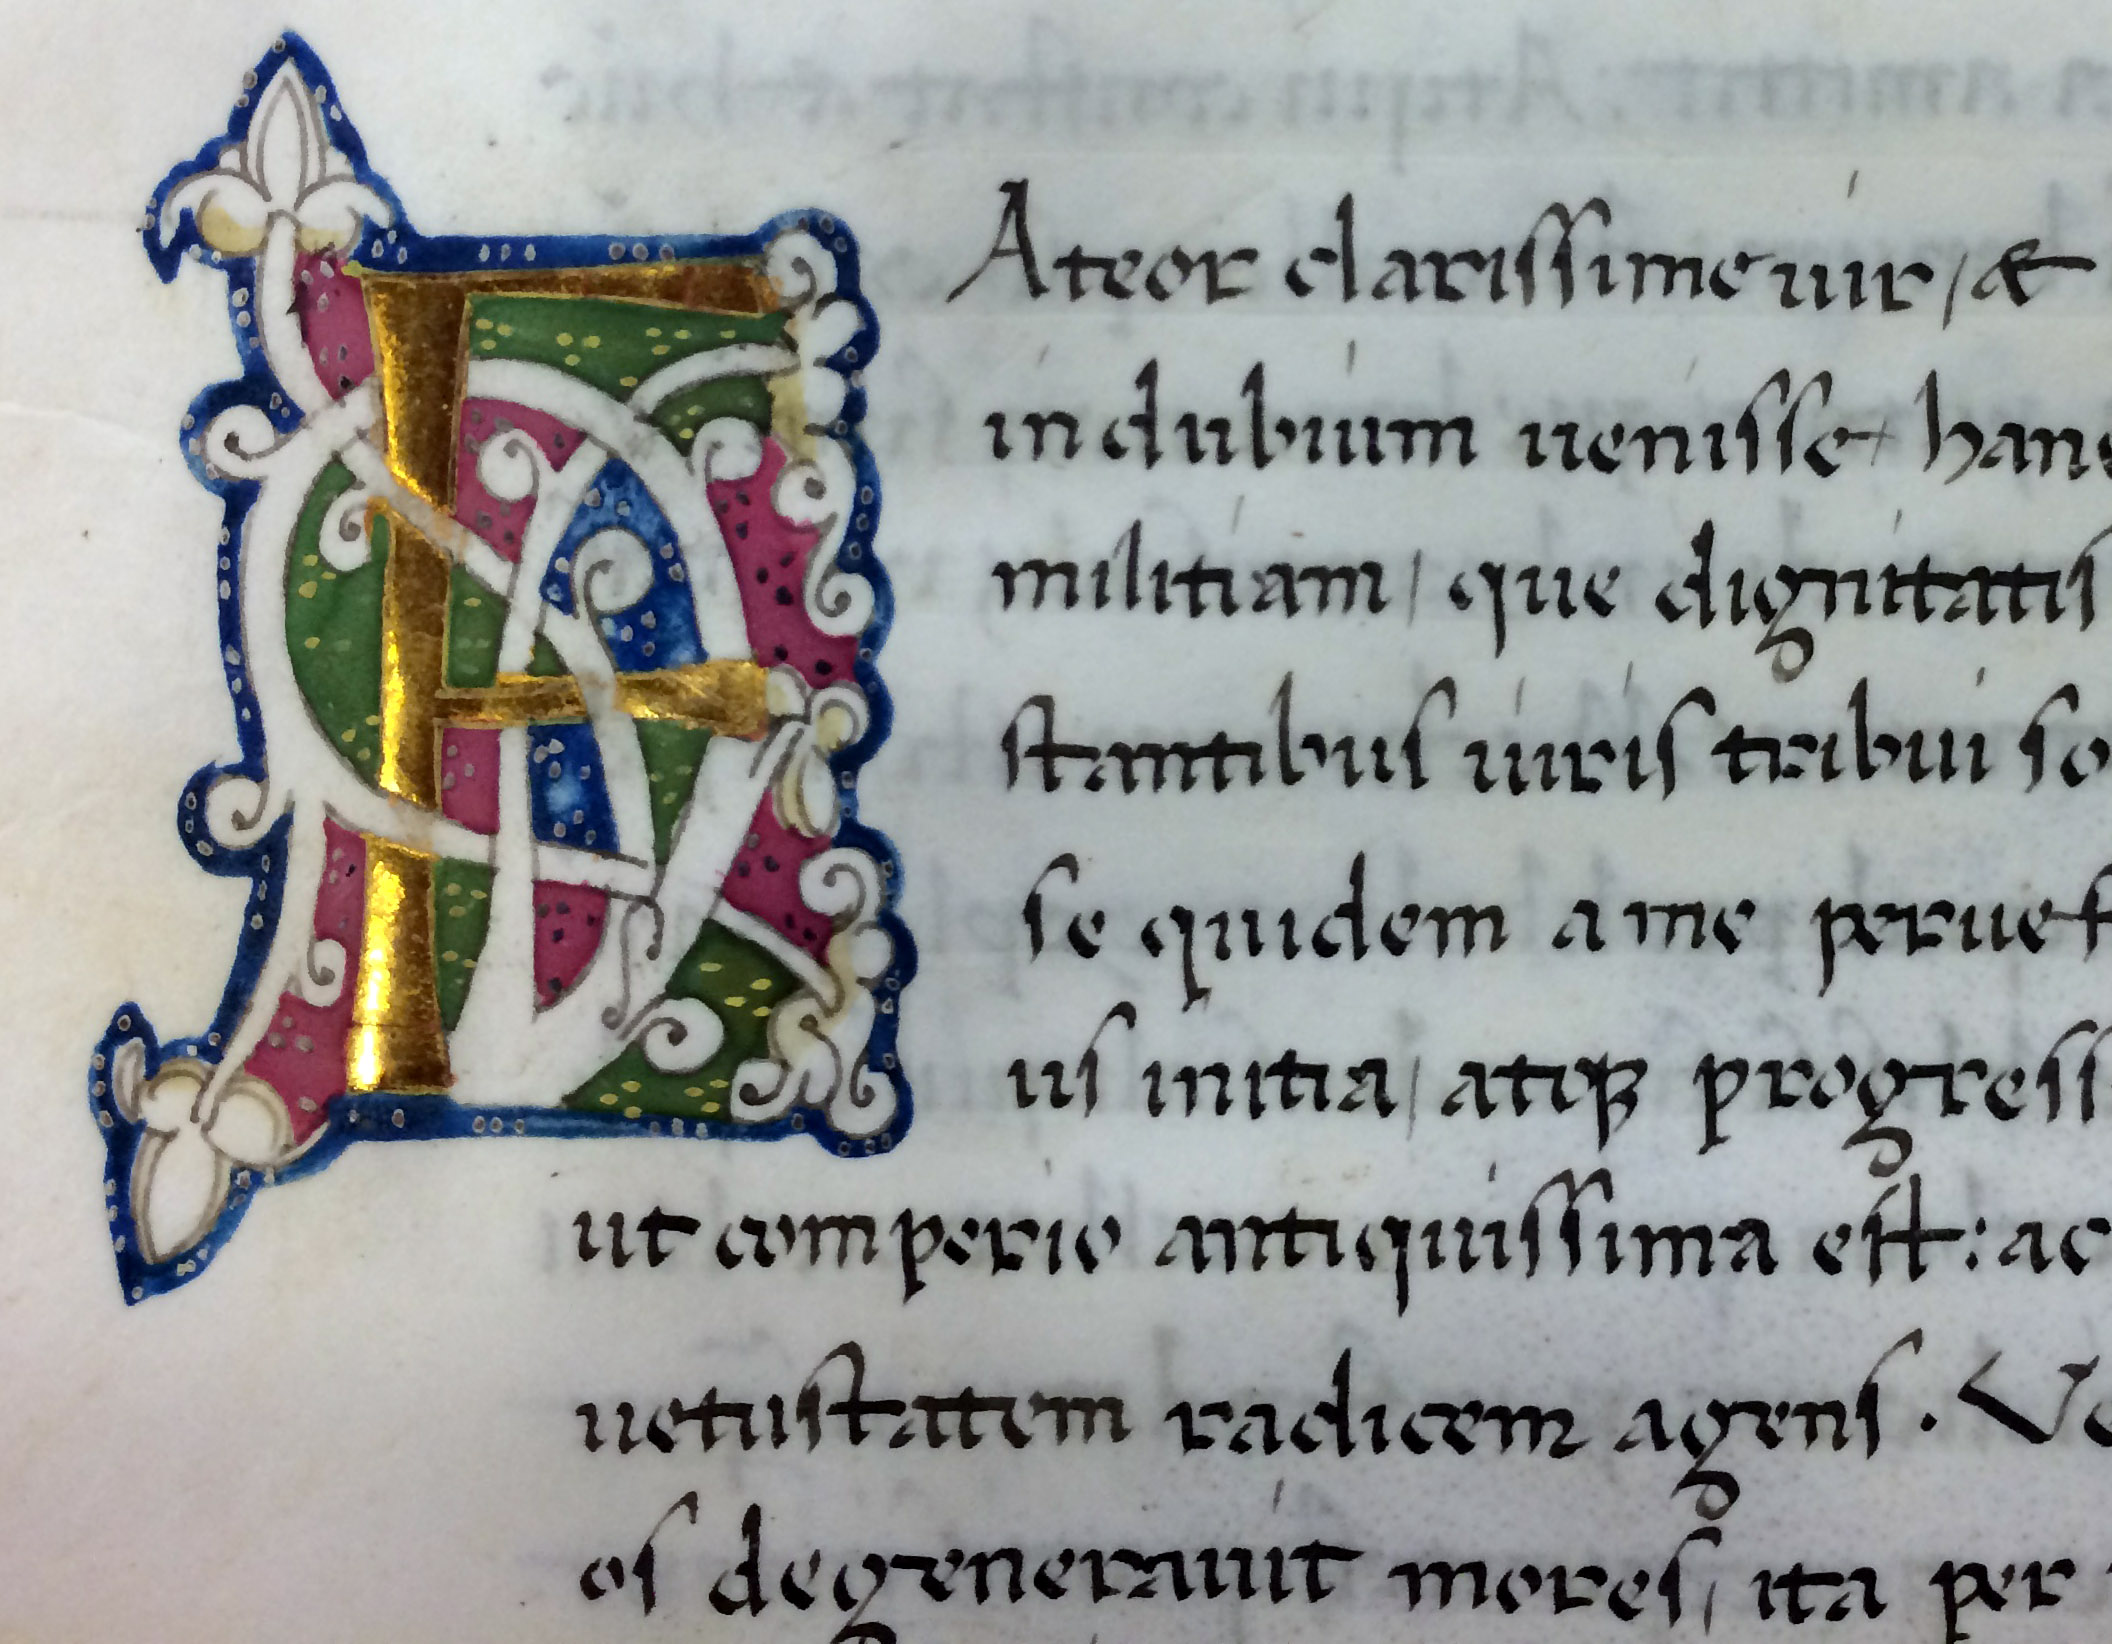 FAteor clarissime uir, &
in dubium uenisse hanc
militiam, que dignitatis
stantibus uiris tribui so
se quidem a me peruest
us initia, atqꝫ progress
ut comperio antiquissima est: ac
uetustatem radicem agens. Ve
os degenerauit mores, ita per